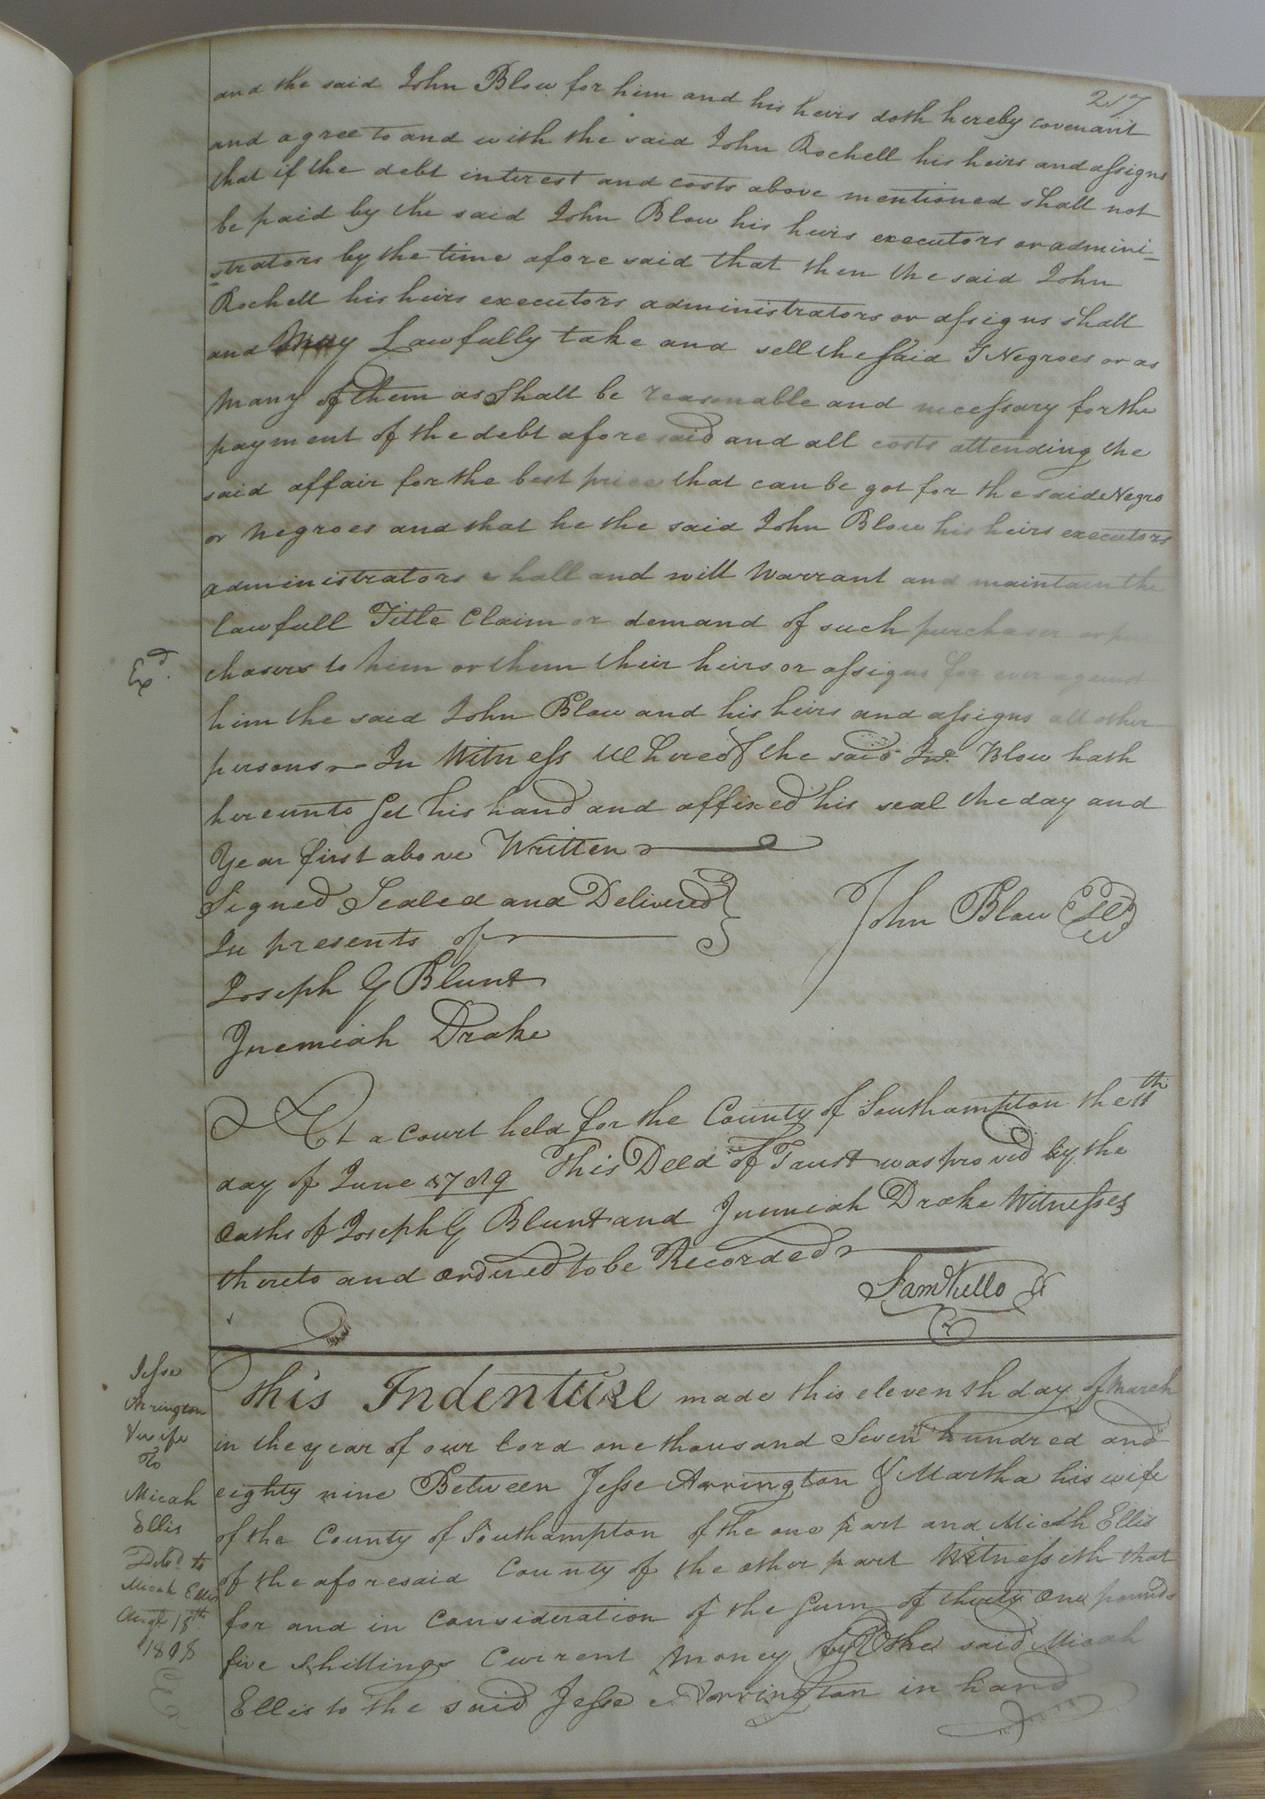 217
and the said John Blow for him and his heirs doth hereby covenant
and agree to and with the said John Rochell his heirs and assigns
that if the debt interest and costs above mentioned shall not
be paid by the said John Blow his heirs executors or admini-
-strators by the time afore said that then the said John
Rochell his heirs executors administrators or assigns shall
and May Lawfully take and sell the said Negroes or as
Many of them as Shall be reasonable and necessary for the
payment of the debt afore said and all costs attending the
said affair for the best price that can be got for the said Negro
or Negroes and that he the said John Blow his heirs executors
administrators shall and will Warrant and maintain the
Lawfull Title Claim or demand of such purchaser or pur
Exd.
chasers to him or them their heirs or assigns for ever against
him the said John Blow and his heirs and assigns all other
persons In Witness Whereof the said Jno. Blow hath
hereunto Set his hand and affixed his seal the day and
Year first above Written
Signed Sealed and Delivered
In presents of
John Blow
Joseph G Blunt
Jeremiah Drake
At a Court held for the County of Southampton the 11th
day of June 1789 This Deed of Trust was proved by the
Oaths of Joseph G Blunt and Jeremiah Drake Witnesses
thereto and ordered to be Recorded
Sam Kello
Jesse
Arrington
& wife
To
Micah
Ellis
Deld. to
Micah Ellis
Augt 18th
This Indenture made this eleventh day of March
in the year of our Lord one thousand Seven hundred and
eighty nine Between Jesse Arrington & Martha his wife
of the County of Southampton of the one part and Micah Ellis
of the aforesaid County of the other part Witnesseth that
for and in Consideration of the Sum of thirty One pounds
five Shillings Current Money by the said Micah
Ellis to the said Jesse Arrington in hand